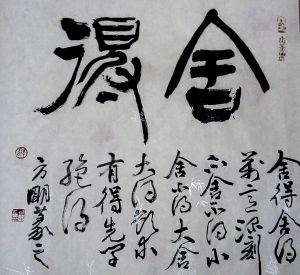 舍得
舍得舍得
寓意深刻
不舍不得小
舍小得大舍
大得欲求
有得先学
得
方明篆之